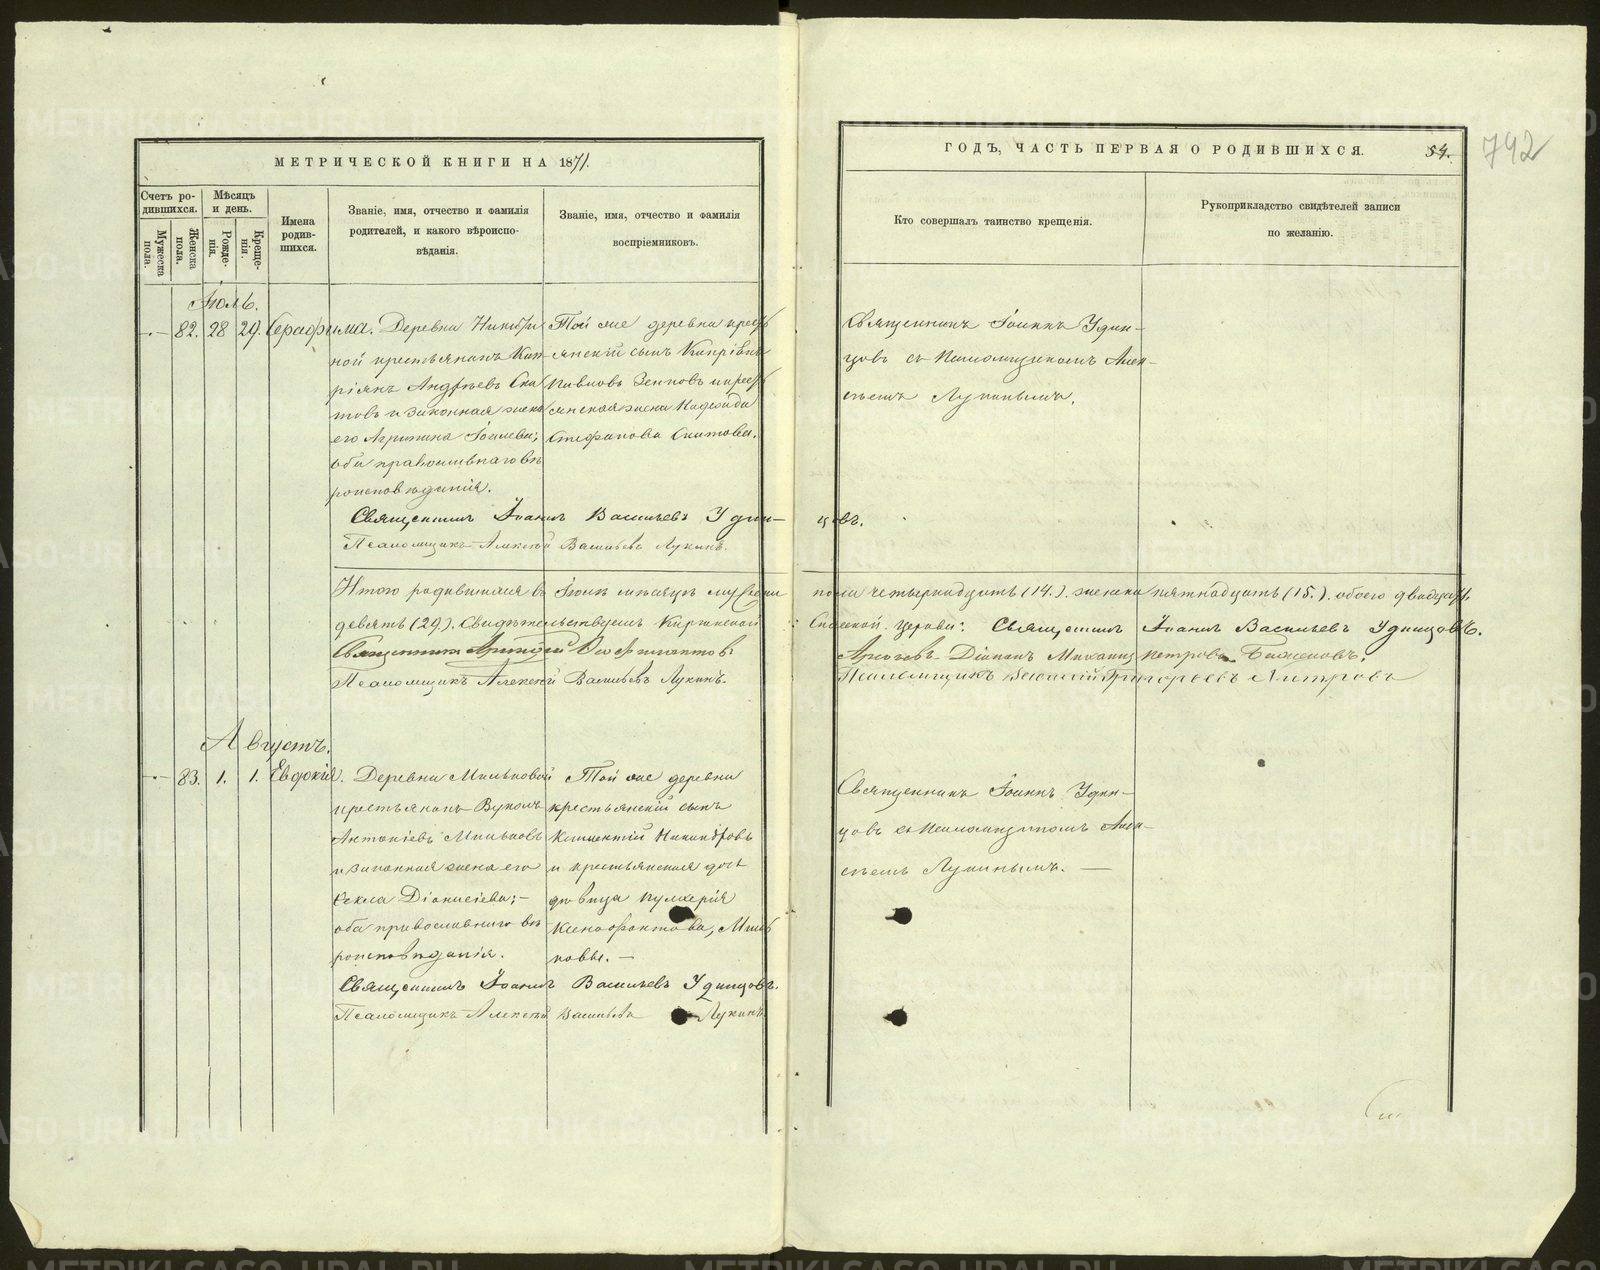 МЕТРИЧЕСКОЙ КНИГИ НА 1871.
ГОДЪ, ЧАСТЬ ПЕРВАЯ О РОДИВШИХСЯ.
54.
792
Счетъ ро-
дившихся.
Мужеска
пола.
Женска
пола.
Мѣсяцъ
и день.
Рожде-
нія.
Креще-
нія.
Имена
родив-
шихся.
Званіе, имя, отчество и фамилія
родителей, и какого вѣроиспо-
вѣданія.
Званіе, имя, отчество и фамилія
воспріемниковъ.
Кто совершалъ таинство крещенія.
Рукоприкладство свидѣтелей записи
по желанію.
Іюль.
82. 28 29. Серафима.
Деревни
ной крестьянинъ Кип-
ріянъ Андреевъ Ски-
товъ и законная жена
его Агрипина
оба православнаго вѣ-
роисповѣданія.
Той же деревни кресть
янскій сынъ
Павловъ Зенковъ и кресть
янская жена Надежда
Стефанова Скитова.
Священникъ Іоаннъ Удин-
цовъ съ Псаломщикомъ Алек-
сѣемъ Лукинымъ.
Священникъ Іоаннъ Васильевъ Удин-
цовъ.
Псаломщикъ Алексѣй Васильевъ Лукинъ.
Итого родившихся въ Іюлѣ мѣсяцѣ мужеска
пола четырнадцать (14.). женска пятнадцать (15.). обоего двадцать
девять (29). Свидѣтельствуемъ Киргинской
Спасской Церкви: Священникъ Іоаннъ Васильевъ Удинцовъ.
Священникъ
Діаконъ Михаилъ Петровъ
Псаломщикъ Алексѣй Васильевъ Лукинъ.
Псаломщикъ Василий Григорьевъ
Августъ.
83. 1. 1. Евдокія.
Деревни Мильковой
крестьянинъ Вуколъ
Антоніевъ Мильковъ
и законная жена его
Текла Діонисіева; –
оба православнаго вѣ-
роисповѣданія.
Той же деревни
крестьянскій сынъ
Никаноровъ
и крестьянская дочь
дѣвица Пулхерія
Ксенофонтова, Миль
ковы. –
Священникъ Іоаннъ Удин-
цовъ съ Псаломщикомъ Алек-
сѣемъ Лукинымъ. –
Священникъ Іоаннъ Васильевъ Удинцовъ.
Псаломщикъ Алексѣй Васильевъ Лукинъ.
METRIKI.GASO-URAL.RU